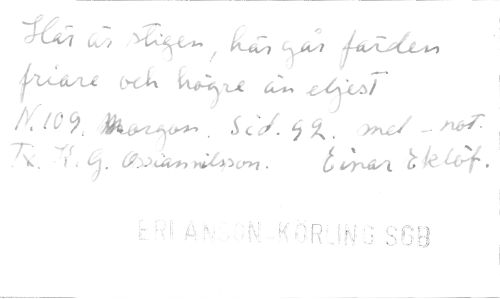 Här är stigen, här går färden
friare och högre än eljest
N. 109. Morgon. Sid. 92. mel - not.
Tx. K. G. Ossiannilsson. Einar Eklöf.
ERLANSON-KÖRLING SGB